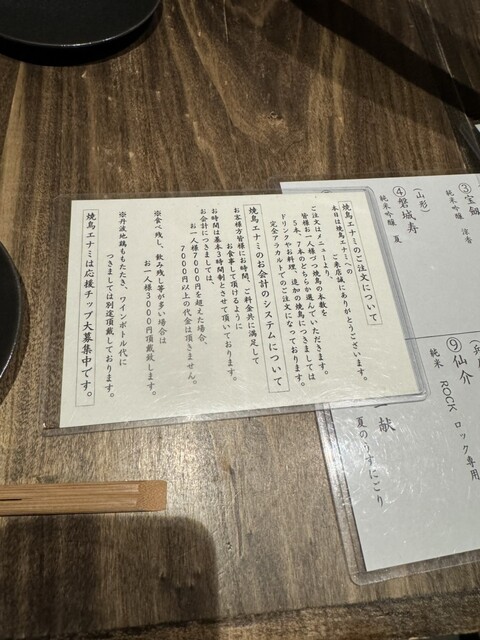 焼鳥エナミのご注文について
本日は焼鳥エナミへの、ご来店誠にありがとうございます。
ご注文はメニューより、
皆様お一人様づつ焼鳥の本数を
5本、7本のどちらか選んでいただきます。
ドリンクやお料理、追加の焼鳥につきましては
完全アラカルトでのご注文になっております。
焼鳥エナミのお会計のシステムについて
お客様方皆様にお時間、ご料金共に満足して
お食事して頂けるように
お時間は基本3時間制とさせて頂いております。
お会計につきましては
お一人様7000円を超えた場合、
7000円以上の代金は頂きません。
※食べ残し、飲み残し等が多い場合は
お一人様3000円頂戴致します。
※丹波地鶏ももたたき、ワインボール代に
つきましては別途頂戴しております。
焼鳥エナミは応援チップ大募集中です。
③宝剣
純米吟醸 涼香
(山形)
④磐城寿
純米吟醸 夏
⑨仙介
純米 ROCK ロック専用
献
夏のうすにごり